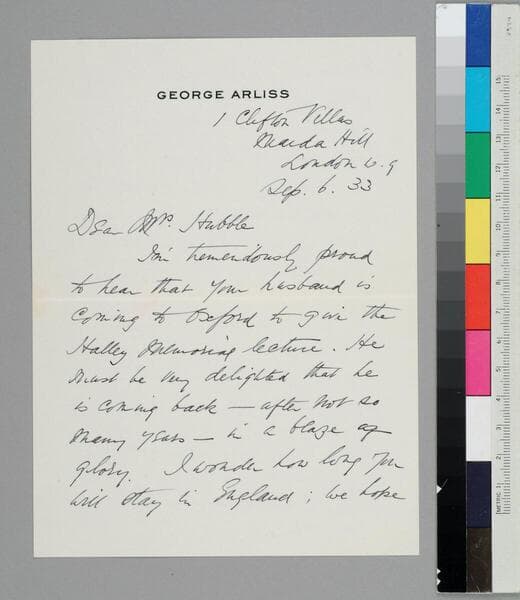 GEORGE ARLISS
1 Clifton Villas
Maida Hill
London W. 9
Sep. 6. 33
Dear Mrs. Hubble
I'm tremendously proud
to hear that your husband is
coming to Oxford to give the
Halley Memorial lecture. He
must be very delighted that he
is coming back — after not so
many years — in a blaze of
glory. I wonder how long you
will stay in England; we hope